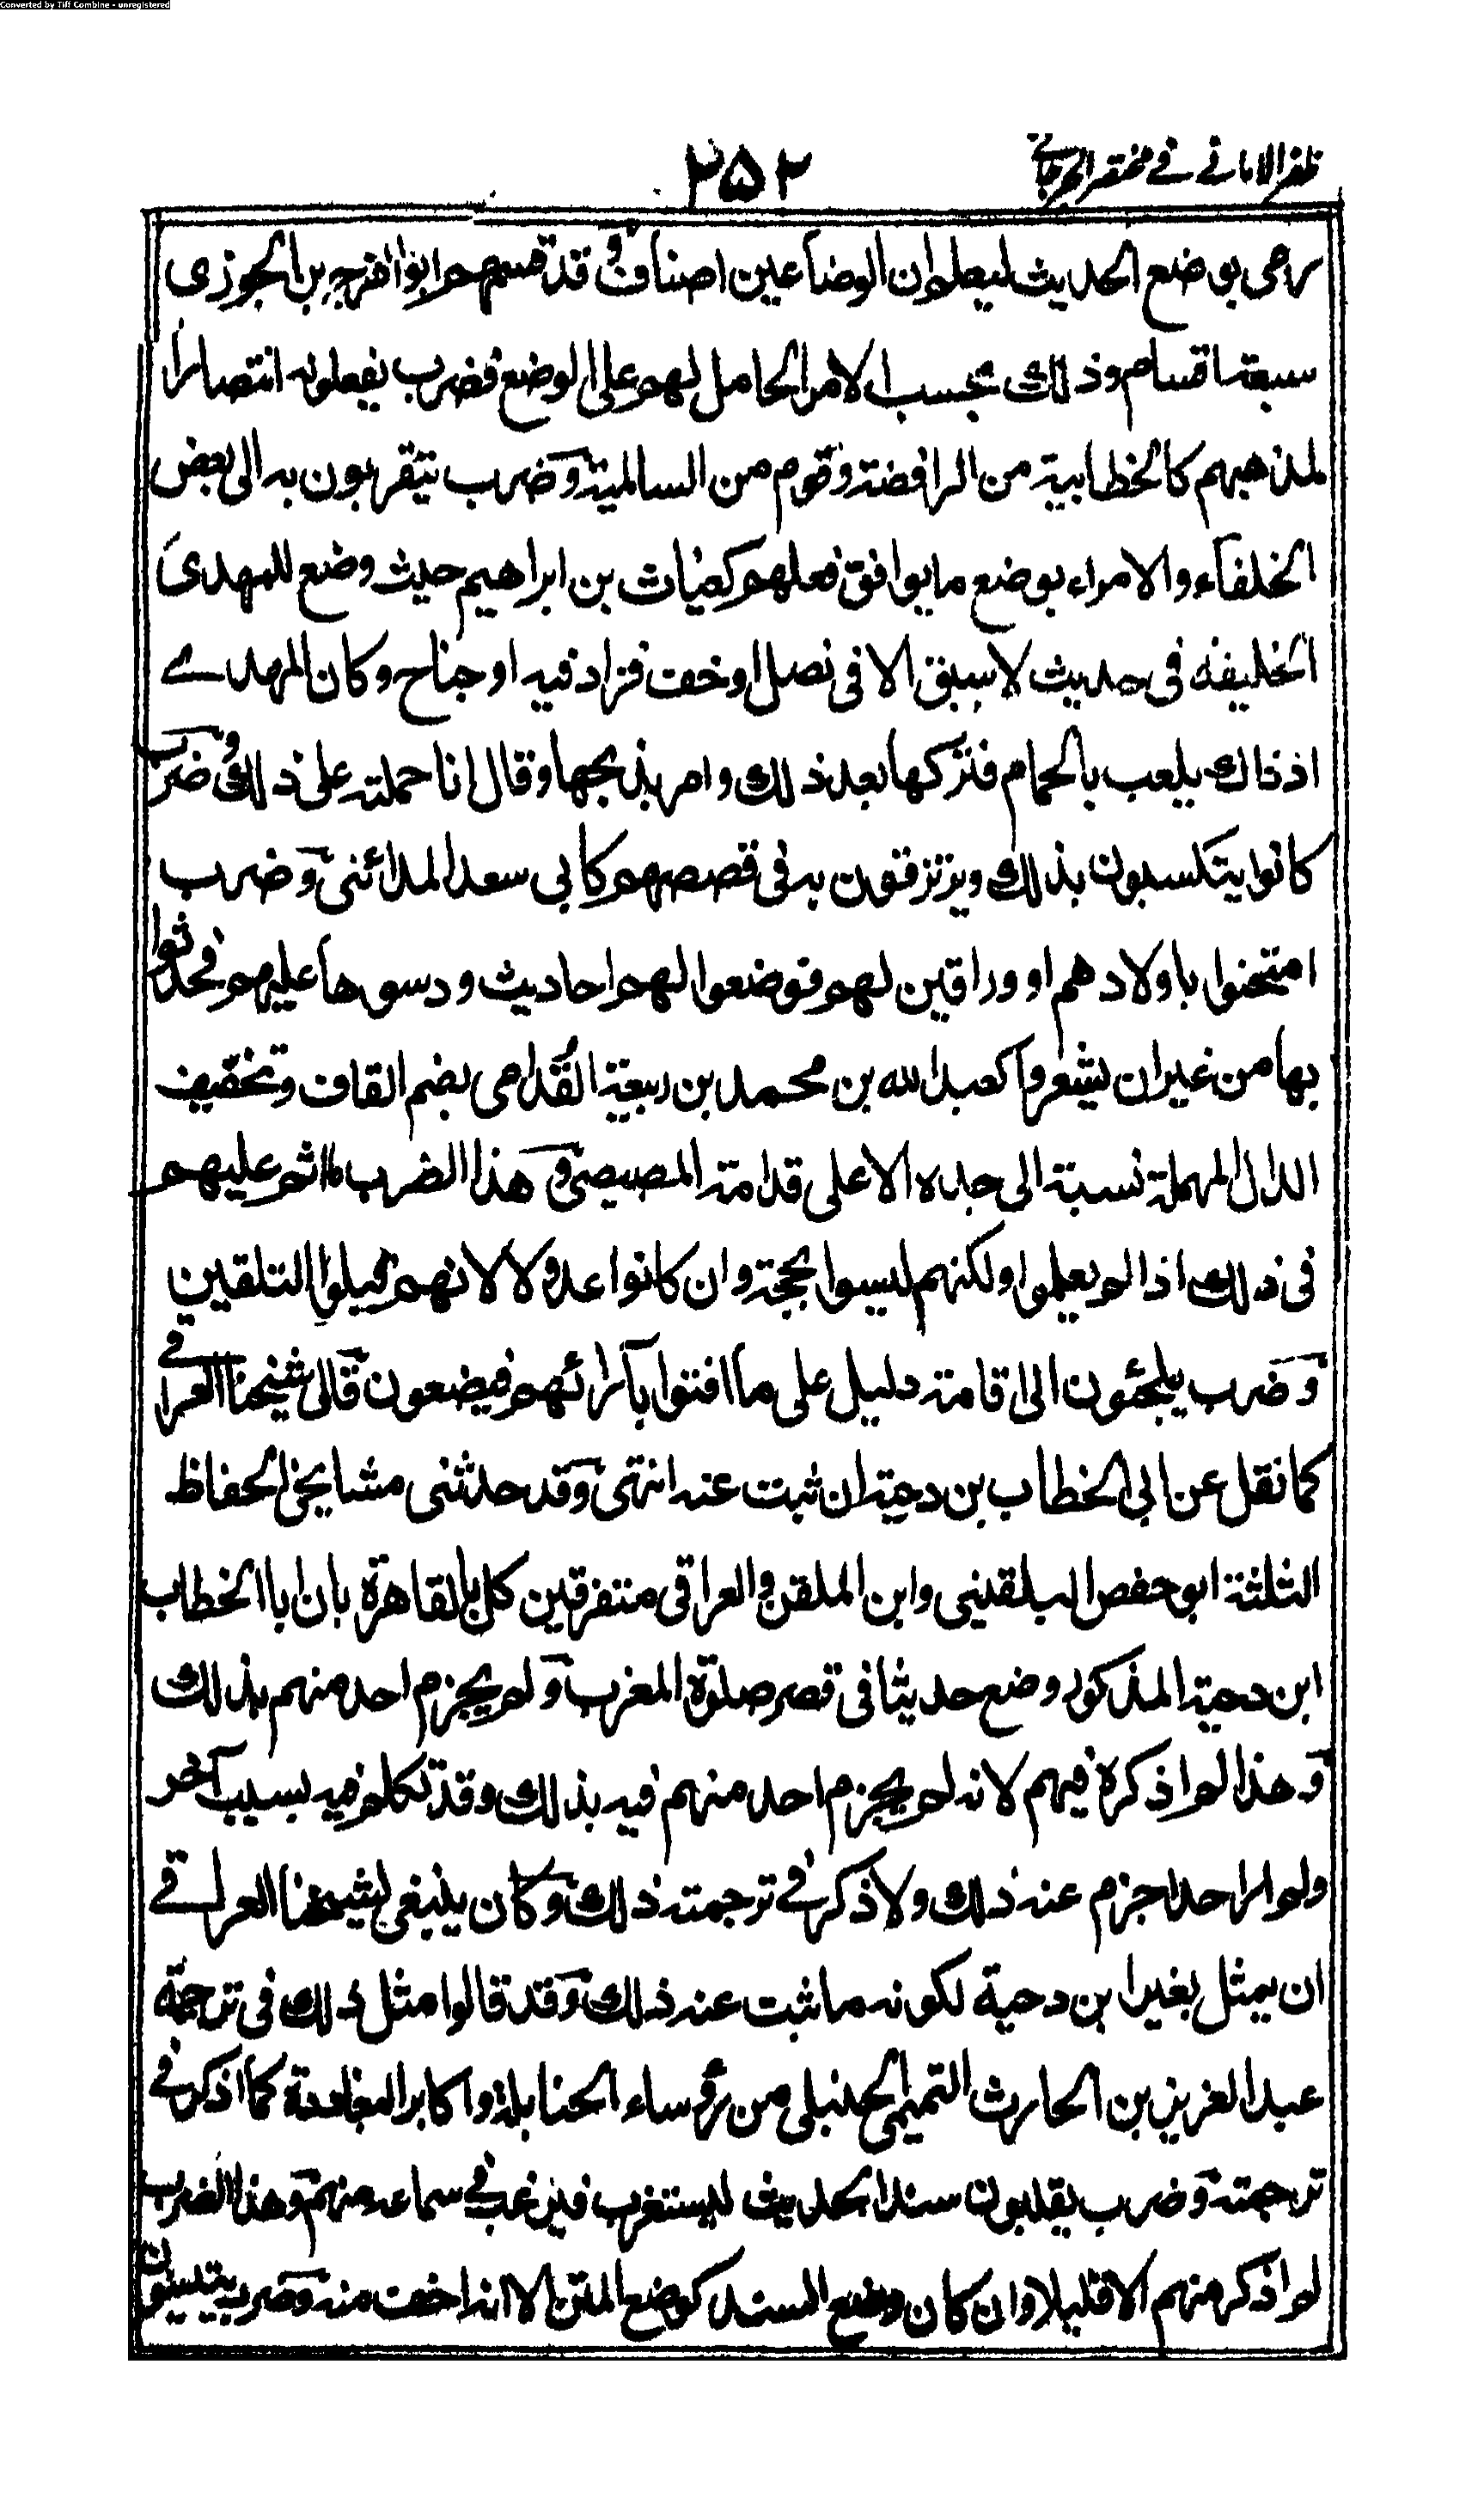 Converted by Tiff Combine - unregistered
ظفر الامانے فے مختصر الجرجانے
۲۵۲
رمی بوضع الحدیث لیعلم ان الوضاعین اصناف وقد قسمهم ابو الفرج بن الجوزی
سبعة اقسام وذلك بحسب الامر الحامل لهم علی الوضع فضرب یفعلونه انتصارا
لمذهبهم كالخطابیة من الرافضة وقوم من السالمیة وضرب یتقربون به الی بعض
الخلفاء والامراء بوضع ما یوافق فعلهم كغیاث بن ابراهیم حیث وضع للمهدی
الخلیفة فی حدیث لا سبق الا فی نصل او خف فزاد فیه او جناح وكان المهدے
اذ ذاك یلعب بالحمام فتركها بعد ذلك وامر بذبحها وقال انا حملته علی ذلك وضرب
كانوا یتكسبون بذلك ویرتزقون به فی قصصهم كابی سعد المدائنی وضرب
امتحنوا باولادهم او وراقین لهم فوضعوا لهم احادیث ودسوها علیهم فحدثوا
بها من غیر ان یشعروا كعبد الله بن محمد بن ربیعة القُدامی بضم القاف وتخفیف
الدال المهملة نسبة الی جده الاعلی قدامة المصیصی وهذا الضرب لا اثم علیهم
فی ذلك اذا لم یعلموا ولكنهم لیسوا بحجة وان كانوا عدولا لانهم قبلوا التلقین
وضرب یلجئون الی اقامة دلیل علی ما افتوا بآرائهم فیضعون قال شیخنا العراقے
كما نقل عن ابی الخطاب بن دحیة ان ثبت عنه انتهی وقد حدثنی مشایخی الحفاظ
الثلثة ابو حفص البلقینی وابن الملقن والعراقی متفرقین كل بالقاهرة بان ابا الخطاب
ابن دحیة المذكور وضع حدیثا فی قصر صلوة المغرب ولم یجزم احد منهم بذلك
وهذا لم اذكره فیهم لانه لم یجزم احد منهم فیه بذلك وقد تكلم فیه بسبب آخر
ولم ار احدا جزم عنه ذلك ولا ذكر فے ترجمته ذلك وكان ینبغی لشیخنا العراقے
ان یمثل بغیر ابن دحیة لكونه ما ثبت عنه ذلك وقد قالوا مثل ذلك فی ترجمة
عبد العزیز بن الحارث التمیمی الحنبلی من رؤساء الحنابلة واكابر البغاددة كما اذكر فے
ترجمته وضرب یقلبون سند الحدیث لیستغرب فیرغب فے سماعه منهم وهذا الضرب
لم اذكر منهم الا قلیلا وان كان وضع السند كوضع المتن الا انه اخف منه وضرب یتدینون